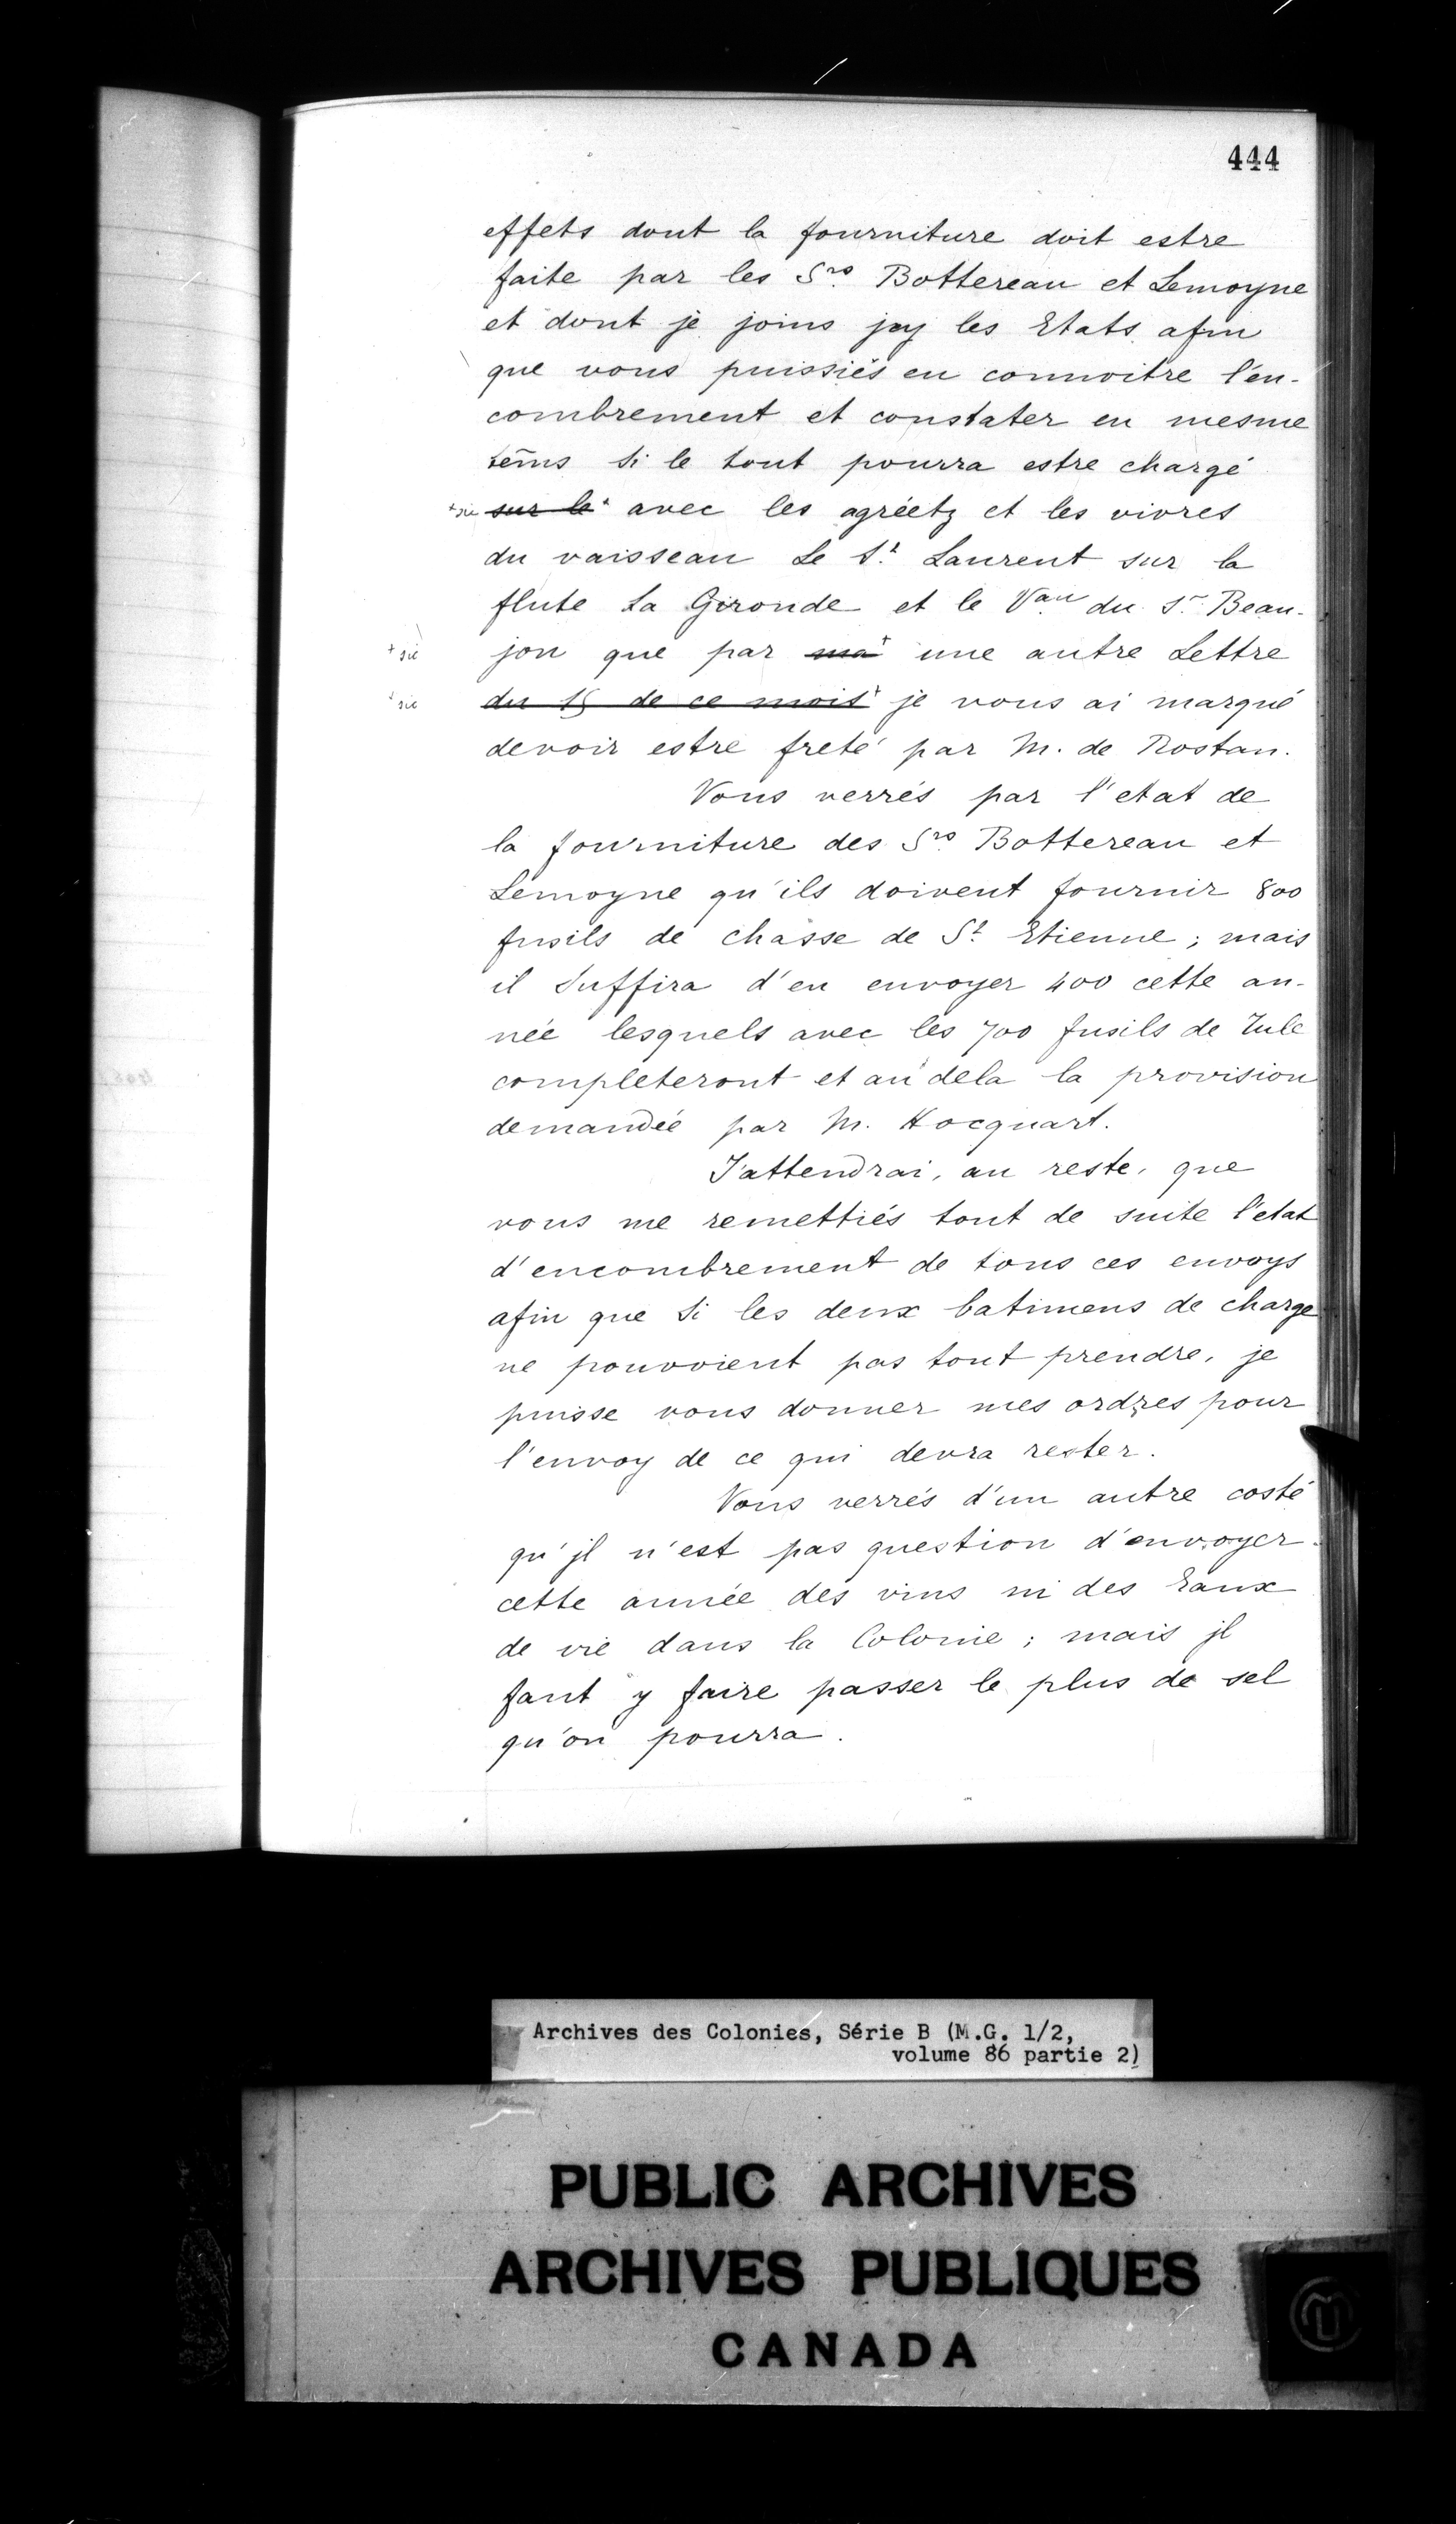 444
effets dont la fourniture doit estre
faite par les Srs Bottereau et Lemoyne
et dont je joins jcy les Etats afin
que vous puissiés en connoitre l'en-
combrement et constater en mesme
tems si le tout pourra estre chargé
+sic sur le+ avec les agréetz et les vivres
du vaisseau Le St Laurent sur la
flute La Gironde et le Vau du Sr Beau-
+ sic jon que par ma+ une autre Lettre
+ sic du 15 de ce mois+ je vous ai marqué
devoir estre freté par M. de Rostan.
Vous verrés par l'etat de
la fourniture des Srs Bottereau et
Lemoyne qu'ils doivent fournir 800
fusils de chasse de St Etienne ; mais
il suffira d'en envoyer 400 cette an-
née lesquels avec les 700 fusils de Tule
completeront et au dela la provision
demandée par M. Hocquart.
J'attendrai, au reste, que
vous me remettiés tout de suite l'etat
d'encombrement de tous ces envoys
afin que si les deux batimens de charge
ne pouvoient pas tout prendre, je
puisse vous donner mes ordres pour
l'envoy de ce qui devra rester.
Vous verrés d'un autre costé
qu'jl n'est pas question d'envoyer
cette année des vins ni des Eaux
de vie dans la Colonie ; mais jl
faut y faire passer le plus de sel
qu'on pourra.
Archives des Colonies, Série B (M.G. 1/2,
volume 86 partie 2)
PUBLIC ARCHIVES
ARCHIVES PUBLIQUES
CANADA